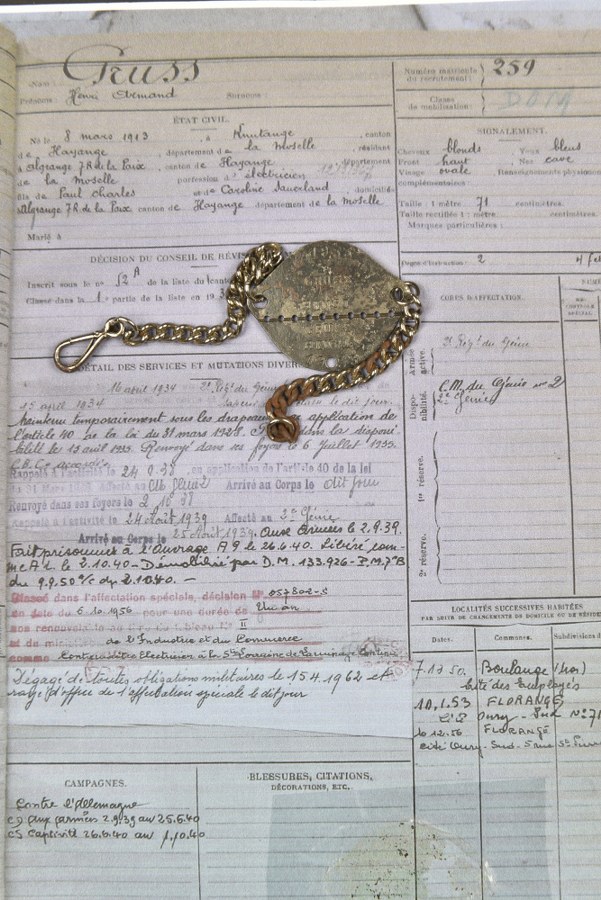 Gruss
Prénoms : Henri Armand Surnoms :
Numéro matricule du recrutement : 259
Classe de mobilisation :
ÉTAT CIVIL.
Né le 8 mars 1913, à Knutange, canton
de Hayange, département de la Moselle, résidant
à Algrange 7 R. de la Paix, canton de Hayange, département
de la Moselle profession d'électricien
fils de Paul Charles et de Caroline domicilié
Algrange 7 R. de la Paix canton de Hayange département de la Moselle
Marié à
SIGNALEMENT.
Cheveux blonds Yeux bleus
Front haut Nez cave
Visage ovale Renseignements physion
complémentaires :
Taille : 1 mètre 71 centimètres.
Taille rectifiée : 1 mètre centimètres.
Marques particulières :
Degré d'instruction : 2
DÉCISION DU CONSEIL DE RÉVIS
Inscrit sous le n° 12 A de la liste du canton
Classé dans la 1e partie de la liste en 193
CORPS D'AFFECTATION.
Armée active.
2e Régt du Génie
Disponibilité.
C.M. du Génie n° 2
2e Génie
1re réserve.
2e réserve.
DÉTAIL DES SERVICES ET MUTATIONS DIVERSES
16 avril 1934 2e Rég. du Génie
15 avril 1934 dit jour.
Maintenu temporairement sous les drapeaux en application de
l'article 40 de la loi du 31 mars 1928. dans la disponi
bilité le 15 avril 1935. Renvoyé dans ses foyers le 6 Juillet 1935.
Rappelé à l'activité le 24 9.38, en application de l'article 40 de la loi
du 31 Affecté au Arrivé au Corps le dit jour
Renvoyé dans ses foyers le 2 10 38
Rappelé à l'activité le 24 Août 1939 Affecté au 2e Génie
Arrivé au Corps le 25 Août 1939. Aux Armées le 2.9.39.
Fait prisonnier à l'Ouvrage A 9 le 26.6.40. Libéré com-
me A L le 2.10.40 - Démobilisé par D.M. 133.926 - P.M. 7°B
du 9.9.50 c/c du 2.10.40. -
Classé dans l'affectation spéciale, décision N° 057802-S
en date du 6.10.1956 pour une durée de Un an
non renouvelable II
de l'Industrie et du Commerce
comme Contremaître Electricien à la Sté Lorraine de Laminage Continu
Dégagé de toutes obligations militaires le 15.4.1962 et
rayé d'office de l'affectation spéciale le dit jour
LOCALITÉS SUCCESSIVES HABITÉES
PAR SUITE DE CHANGEMENT DE DOMICILE OU DE RÉSIDENCE
Dates. Communes. Subdivisions de
7.12.50 Boulange (Mos)
Cité des Employés
10.1.53 FLORANGE
Cité Oury - Sud N° 71
10.12.56 FLORANGE
Cité Oury-Sud-
CAMPAGNES.
Contre l'Allemagne
CD aux armées 2.9.39 au 25.6.40
CS Captivité 26.6.40 au 1.10.40
BLESSURES, CITATIONS,
DÉCORATIONS, ETC.